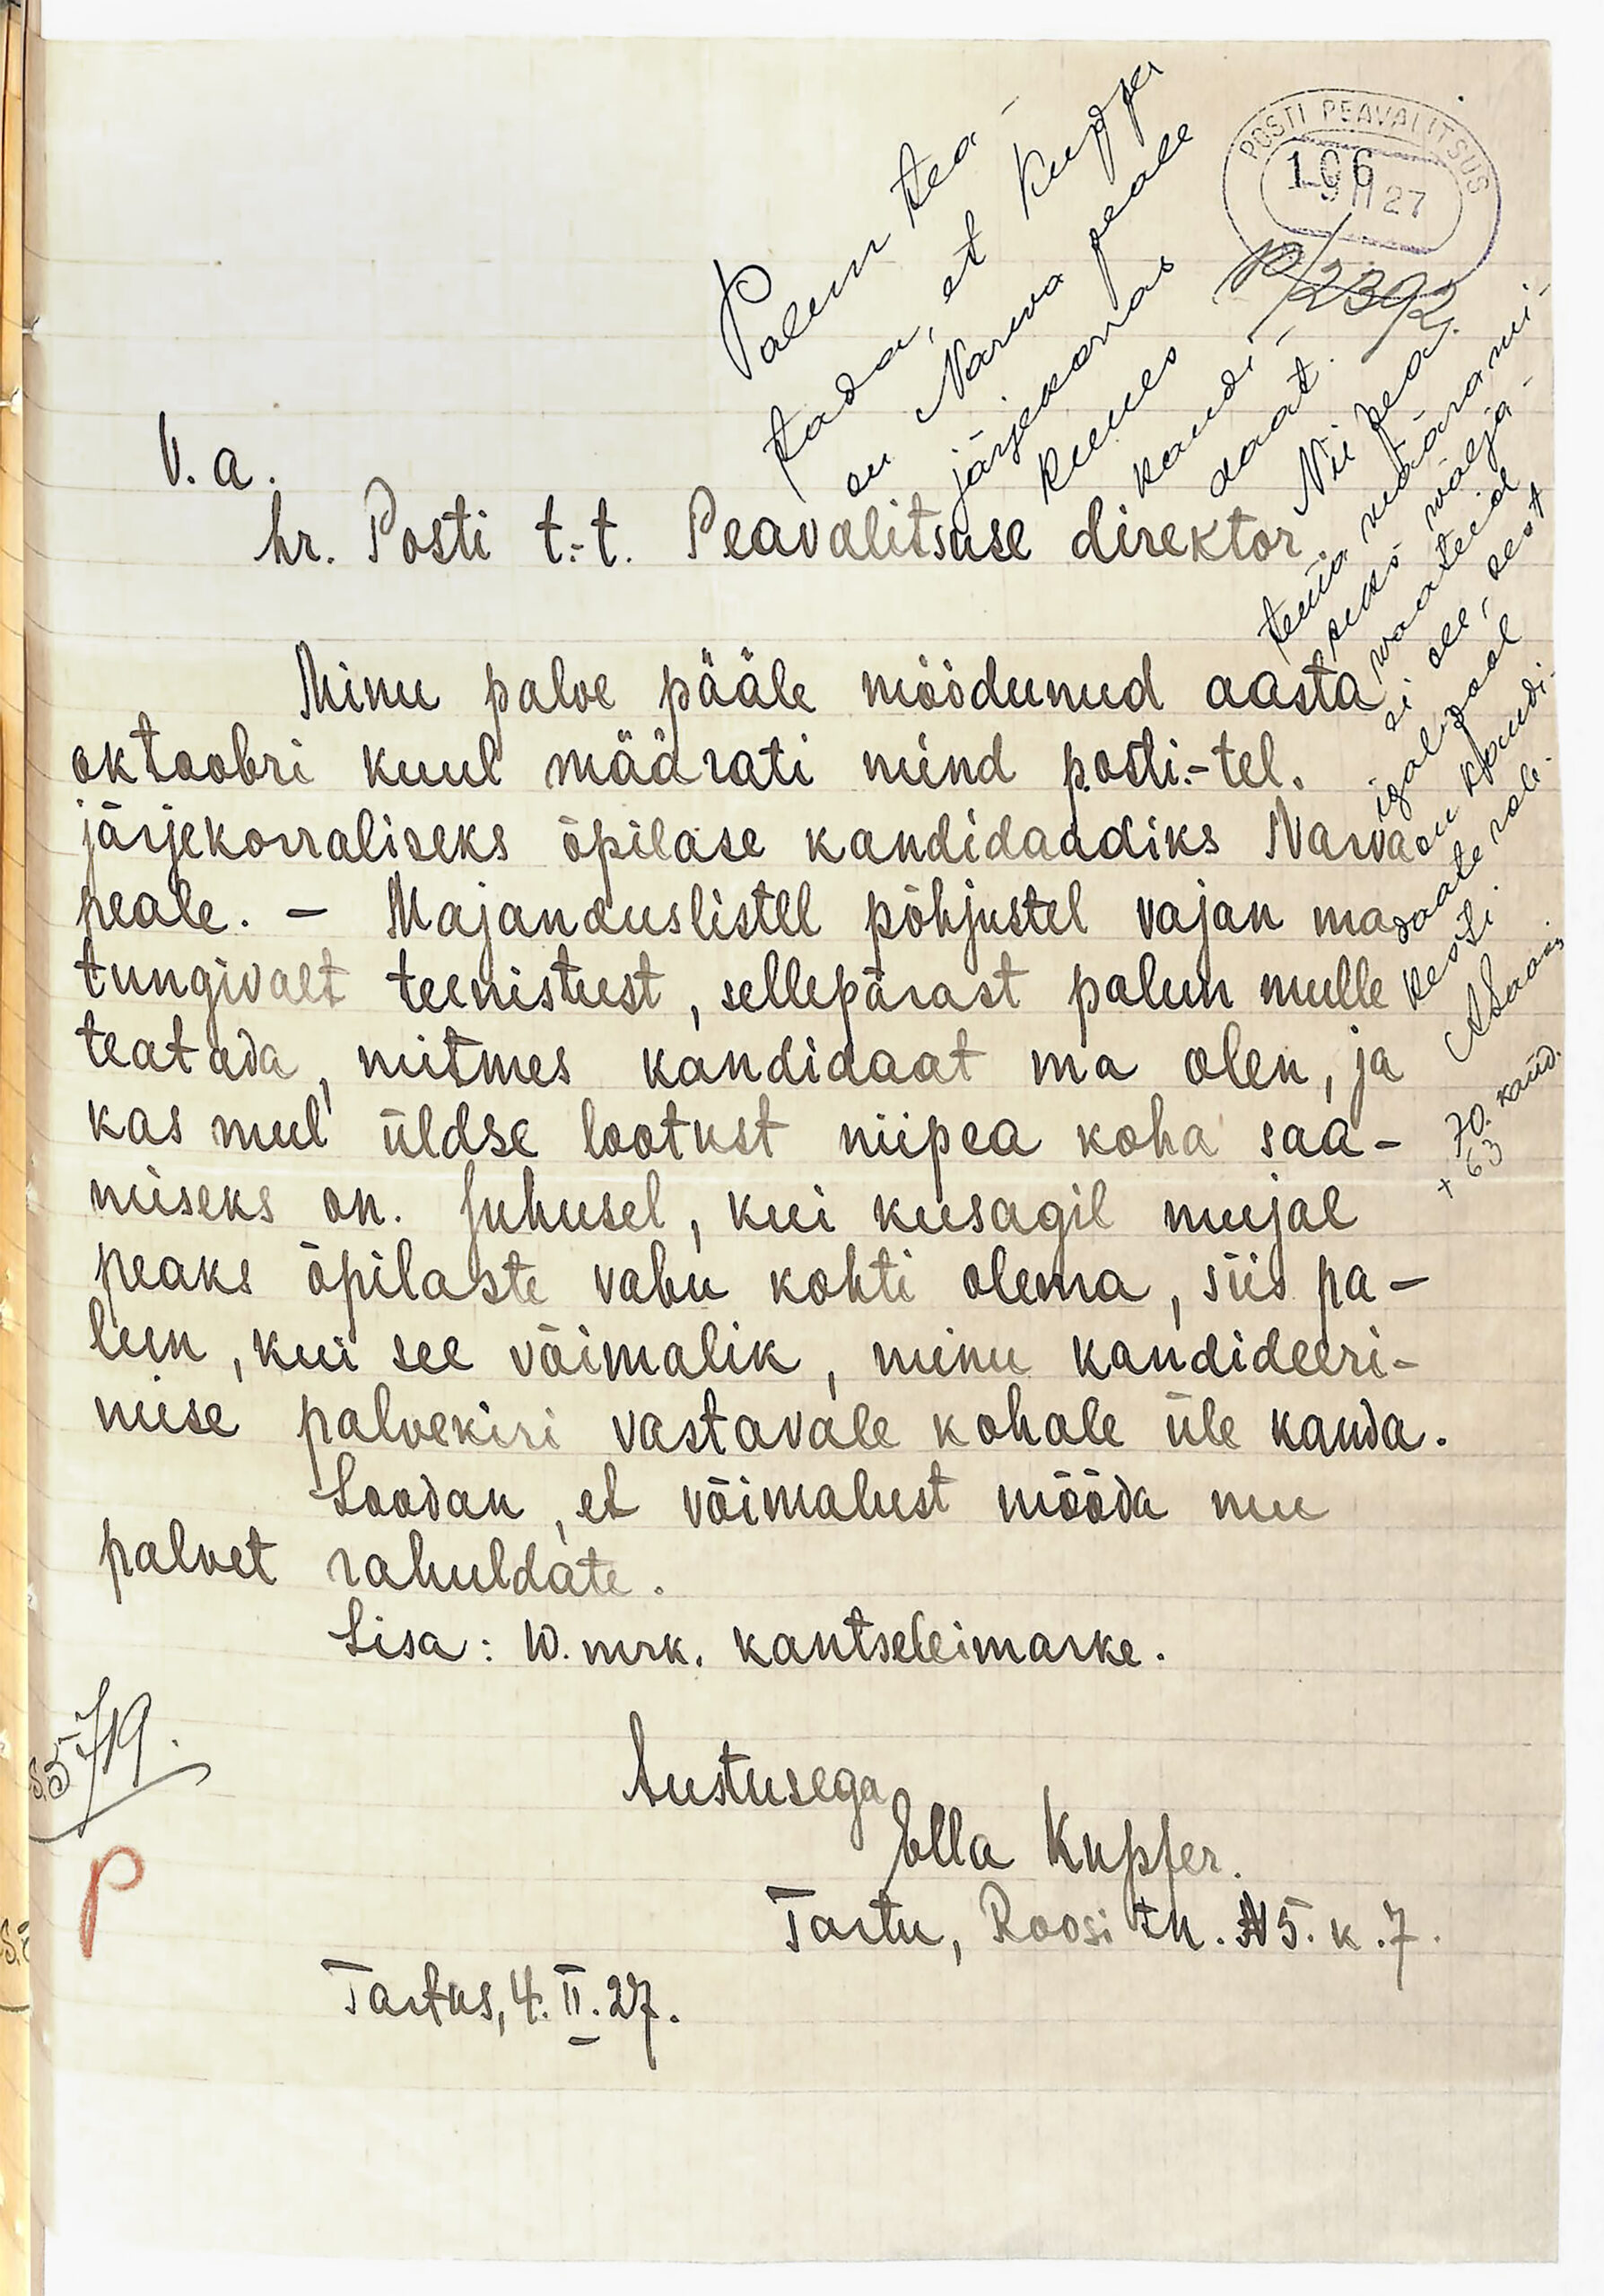 POSTI PEAVALITSUS
106
-9 II 27
p/2392.
Palun tea-
tada, et Kupfer
on Narva peale
järjekorras
kuues
kandi-
daat.
Nii pea
tema määrami-
seks välja-
vaateid
ei ole, sest
igalpool
on kandi-
daate rohk-
kesti
70. kand.
+ 63
V. a.
hr. Posti t.-t. Peavalitsuse direktor.
Minu palve pääle möödunud aasta
oktoobri kuul määrati mind posti.-tel.
järjekorraliseks õpilase kandidaadiks Narva
peale. – Majanduslistel põhjustel vajan ma
tungivalt teenistust, sellepärast palun mulle
teatada, mitmes kandidaat ma olen, ja
kas mul üldse lootust niipea koha saa-
miseks on. Juhusel, kui kusagil mujal
peaks õpilaste vabu kohti olema, siis pa-
lun, kui see võimalik, minu kandideeri-
mise palvekiri vastavale kohale üle kanda.
Loodan, et võimalust mööda mu
palvet rahuldate.
Lisa: 10. mrk. kantseleimarke.
Austusega
Ella Kupfer.
Tartu, Roosi tn. N 5. k. 7.
Tartus, 4. II. 27.
S. 579.
P